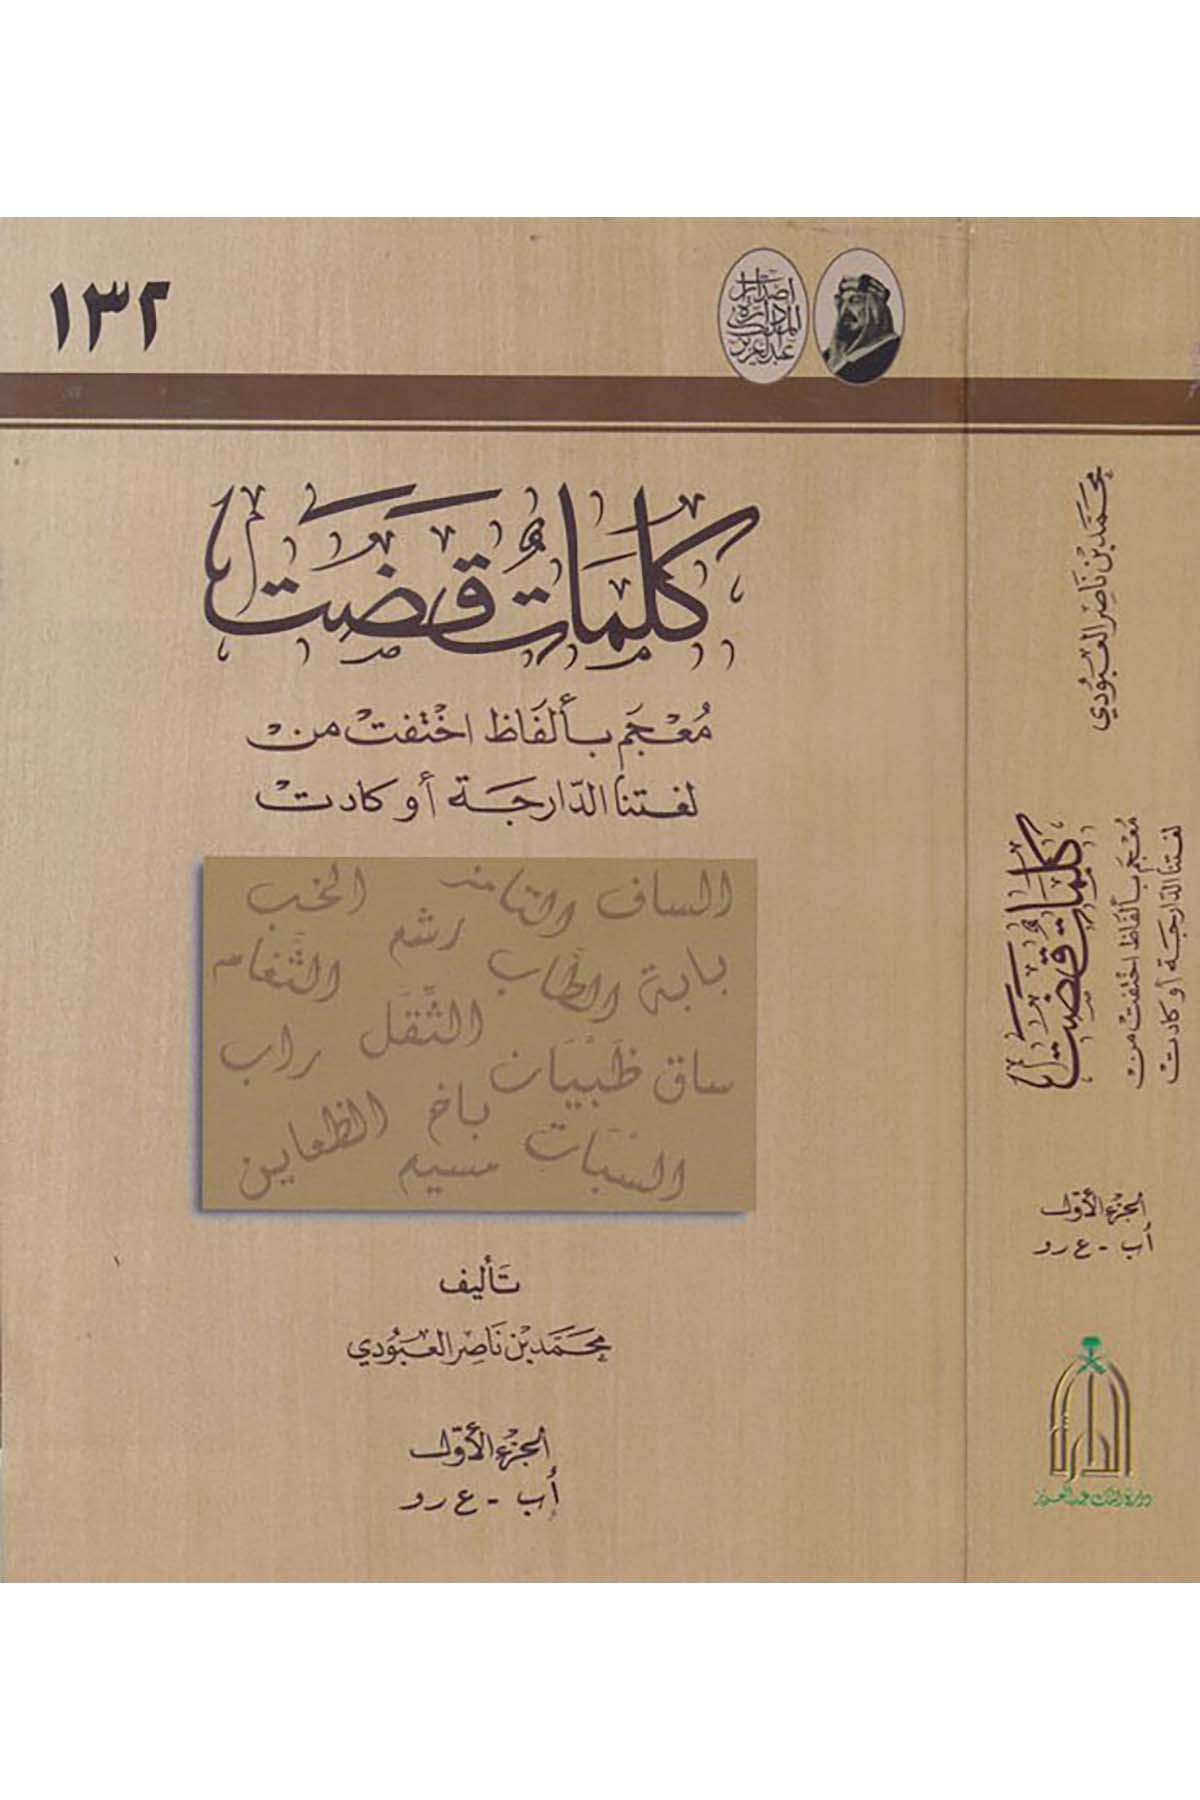 ١٣٢
إصدارات
دارة
الملك
عبدالعزيز
كلمات قضت
مُعْجَم بألفَاظ اختفت من
لغتنا الدّارجَة أو كادت
الساف التامن الخب
رشم
بابة الطَّاب الثَّغامه
الثَّقَل
ساق ظَبْيَان راب
باخ الظعاين
السَّبَات مسيم
تأليف
محمّد بن ناصر العبُودي
الجزء الأوّل
أ ب - ع ر و
محمّد بن ناصر العبُودي
كلمات قضت
مُعْجَم بألفَاظ اختفت من
لغتنا الدّارجَة أو كادت
الجزء الأوّل
أ ب - ع ر و
الدارة
دارة الملك عبدالعزيز